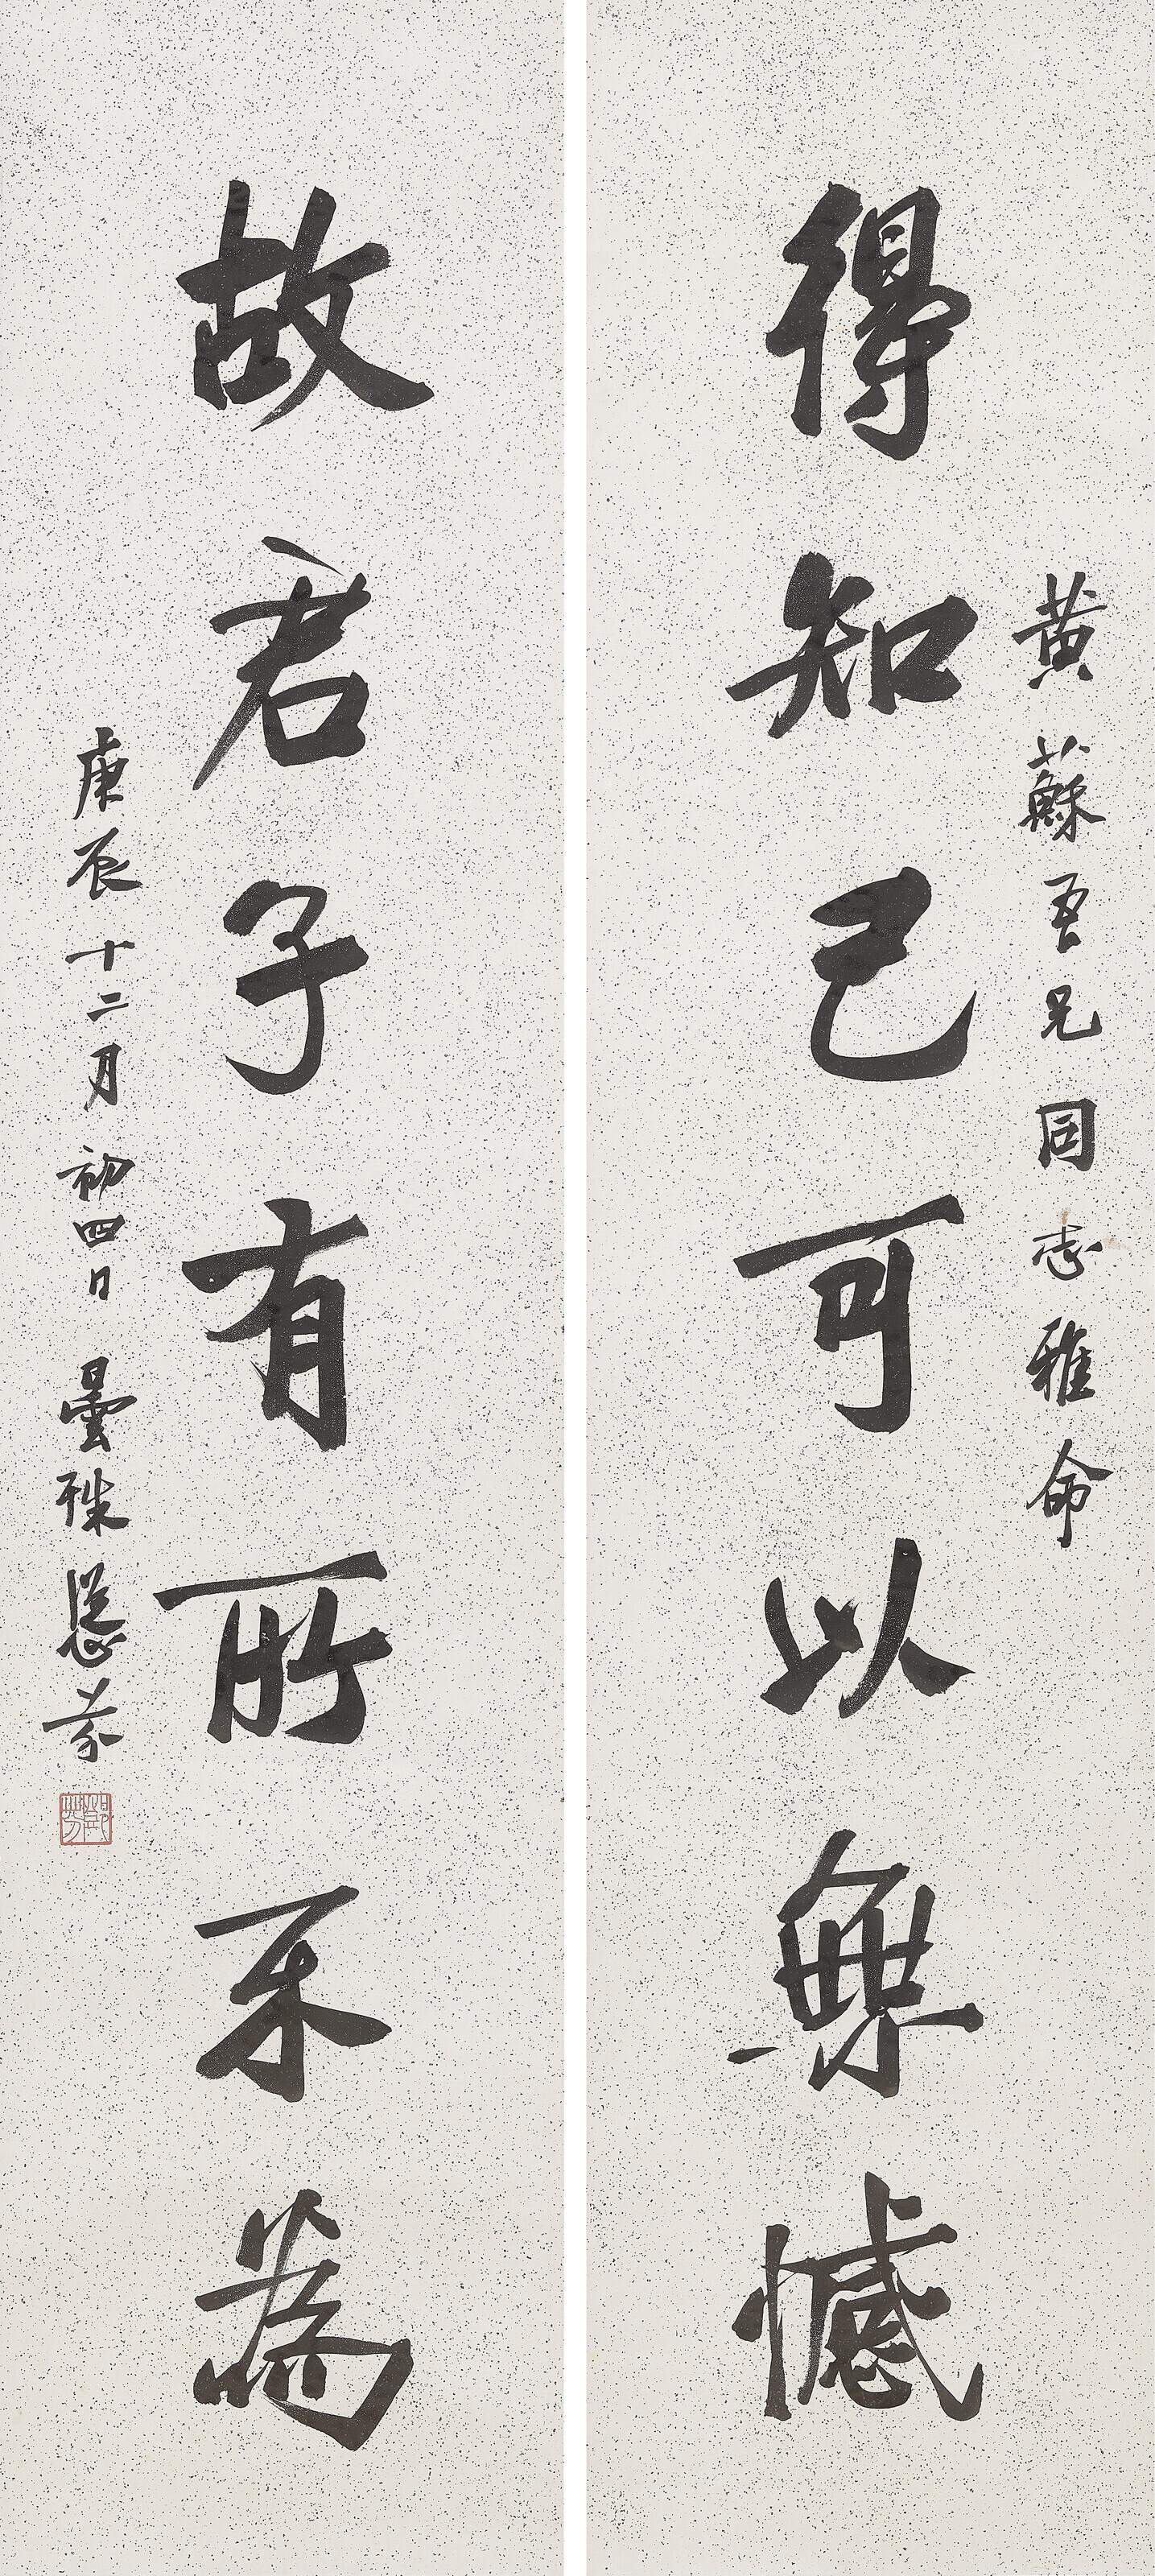 得知己可以無憾
黃蘇吾兄同志雅命
故君子有所不為
庚辰十二月初四日曇殊鄧芬